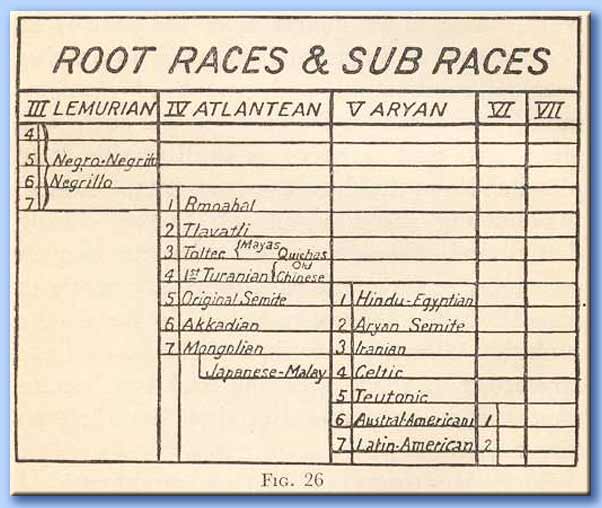 ROOT RACES & SUB RACES
III LEMURIAN IV ATLANTEAN V ARYAN VI VII
4
5 Negro-Negrito
6 Negrillo
7
1 Rmoahal
2 Tlavatli
3 Toltec { Mayas Quichas
4 1st Turanian { Old Chinese
5 Original Semite 1 Hindu-Egyptian
6 Akkadian 2 Aryan Semite
7 Mongolian 3 Iranian
Japanese-Malay 4 Celtic
5 Teutonic
6 Austral-American 1
7 Latin-American 2
FIG. 26